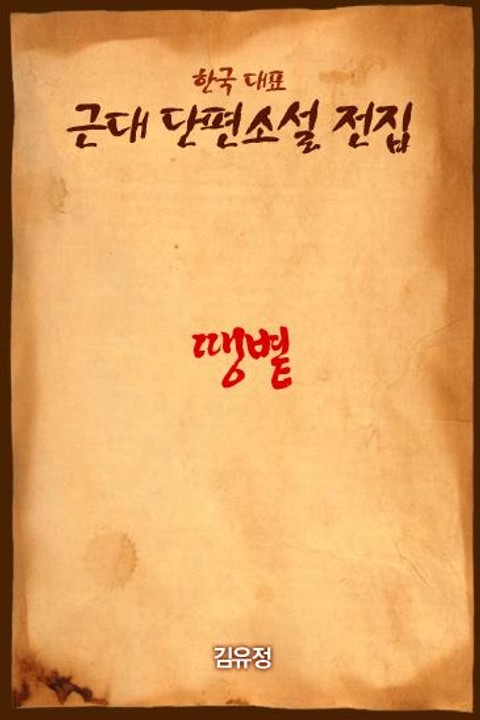 한국 대표
근대 단편소설 전집
땡볕
김유정